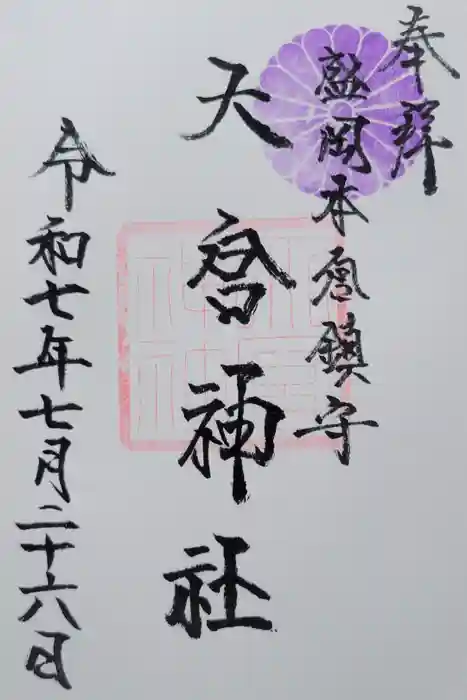 奉拝
盛岡本宮鎮守
大宮神社
令和七年七月二十六日